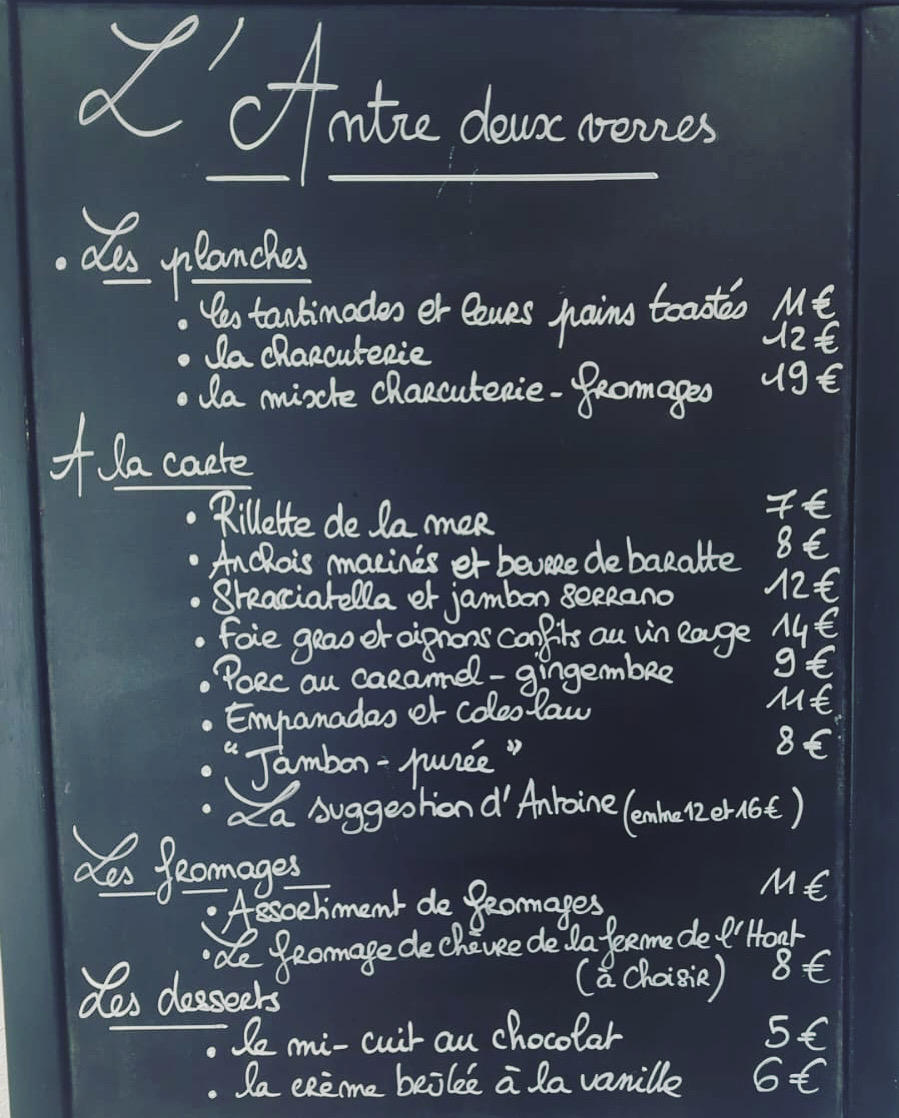 L'Antre deux verres
• Les planches
• les tartinades et leurs pains toastés 11€
• la charcuterie 12€
• la mixte charcuterie - fromages 19€
A la carte
• Rillette de la mer 7€
• Anchois marinés et beurre de baratte 8€
• Stracciatella et jambon serrano 12€
• Foie gras et oignons confits au vin rouge 14€
• Porc au caramel - gingembre 9€
• Empanadas et coleslaw 11€
• "Jambon - purée" 8€
• La suggestion d'Antoine (entre 12 et 16€)
Les fromages
• Assortiment de fromages 11€
• Le fromage de chèvre de la ferme de l'Hort
(à choisir) 8€
Les desserts
• le mi-cuit au chocolat 5€
• la crème brûlée à la vanille 6€